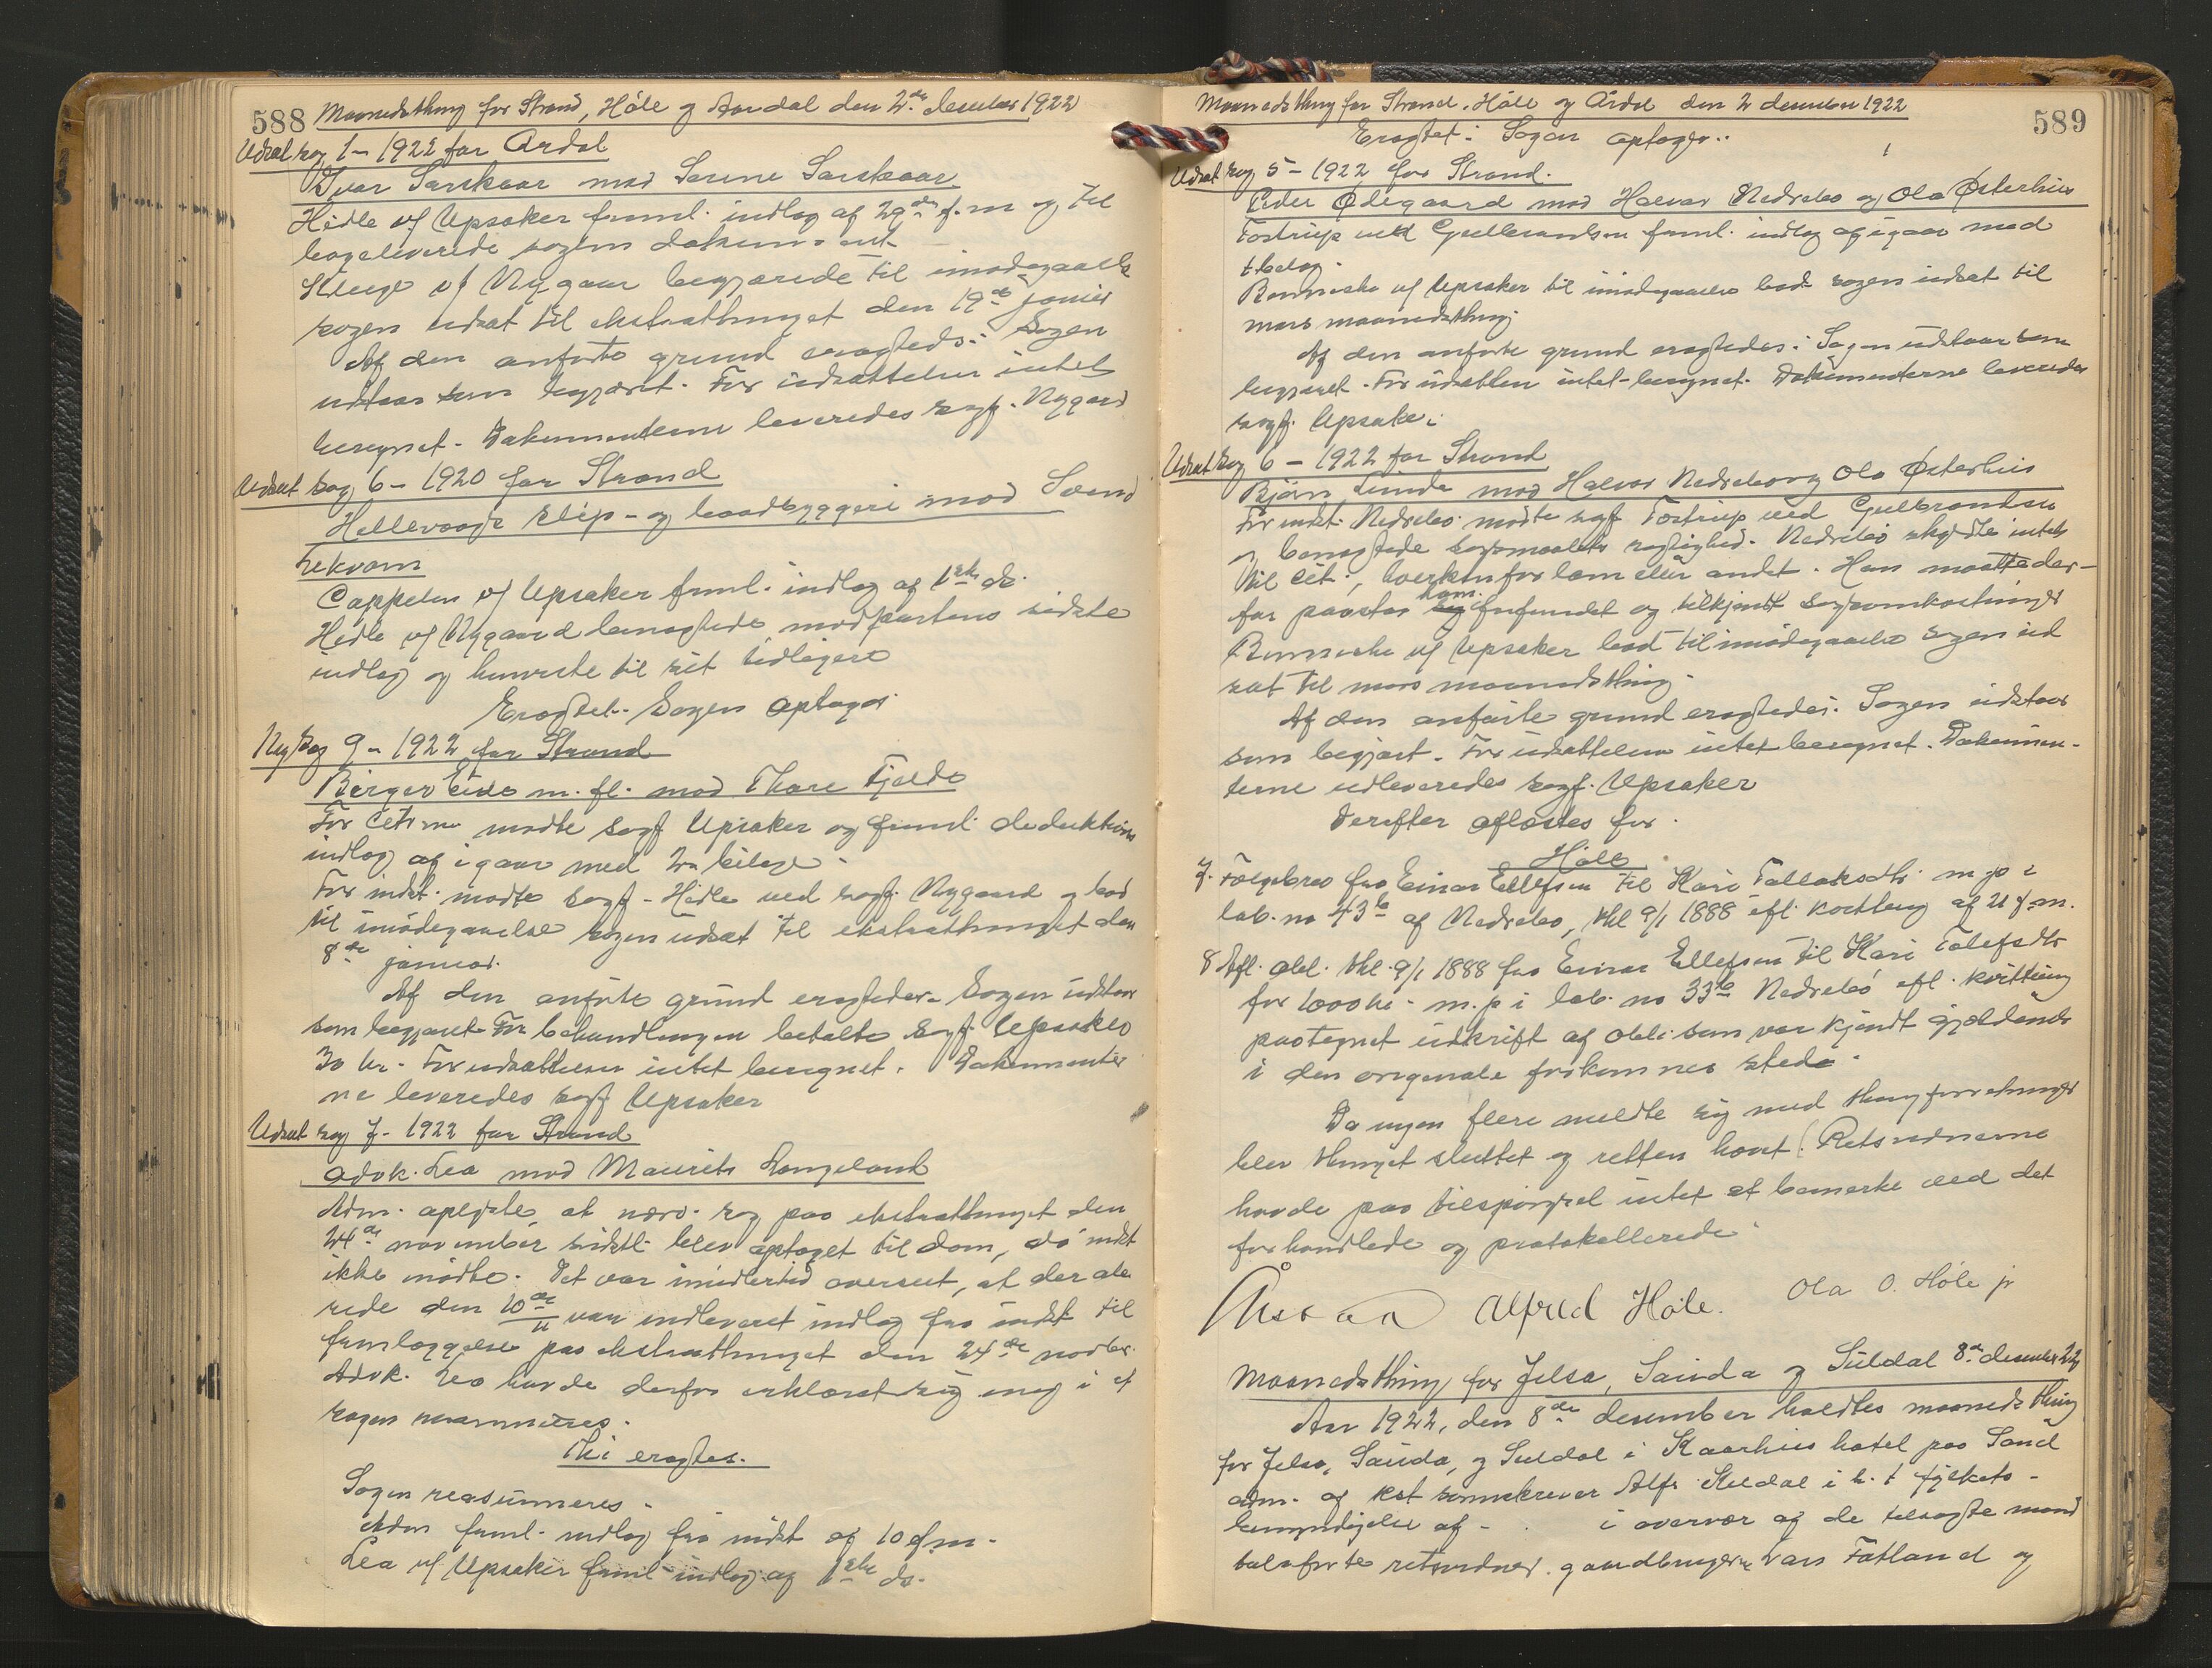 588 Maanedsthing for Strand, Höle og Aardal den 2de desember 1922
Udsat sag 1 - 1922 for Årdal
Ivar Sarskaar mod Serine Sarskaar
Hidle v/ Upsaker freml. indlæg af 29de f.m og til
bageleverede sagens dokum. ent
v/ Nygaar begjærede til imødegaaelse
sagen udsat til ekstrathinget den 19de januar
Af den anførte grund eragtedes: Sagen
udstaar som begjæret. For udsættelsen intet
beregnet. Dokumenterne leveredes sagf. Nygaard
Udsat sag 6 - 1920 for Strand
Hellevaags slip- og baadbyggeri mod Svend
Tekvam
Cappelen v/ Upsaker freml. indlæg af 1ste ds.
Hidle v/ Nygaard benægtede modpartens sidste
indlæg og henviste til sit tidligere
Eragtet. Sagen optages
Ny sag 9 - 1922 for Strand
Birger Eide m. fl. mod Thore Fjelde
For citrne mødte sagf Upsaker og freml. deduktions
indlæg af igaar med 2 bilage.
For indst. mødte sagf. Hidle ved sagf. Nygaard og bad
til imødegaaelse sagen udsat til ekstrathinget den
8de januar.
Af den anførte grund eragtedes. Sagen udstaar
som begjæret. For behandlingen betalte sagf. Upsaker
30 kr. For udsættelsen intet beregnet. Dokumenter
ne leveredes sagf Upsaker
Udsat sag 7 - 1922 for Strand
Advk. Lea mod Maurits Langeland
Adm. oplyste, at nærv. sag paa ekstrathinget den
24de november sidstl. blev optaget til dom, da indst
ikke mødte. Det var imidlertid overseet, at der alle
rede den 10de/11 var indleveret indlæg fra indst til
fremlæggelse paa ekstrathinget den 24de novbr.
Advk. Lea havde derfor erklæret sig enig i at
sagen reasumeres.
Thi eragtes.
Sagen reasumeres.
Adm freml. indlæg fra indst af 10 f.m.
Lea v/ Upsaker freml indlæg af 1ste ds.
Maanedsthing for Strand, Höle og Årdal den 2 desember 1922 589
Eragtet: Sagen optages.
Udsat sag 5 - 1922 for Strand.
Peder Ødegaard mod Halvor Nedrebø og Ola Østerhus
Tostrup ved Gulbrandsen freml. indlæg af igaar med
1 belag.
Rommeske v/ Upsaker til imødegaaelse bad sagen udsat til
mars maanedsthing.
Af den anførte grund eragtedes: Sagen udstaar som
begjæret. For udsættelsen intet beregnet. Dokumenterne leveredes
sagf. Upsaker.
Udsat sag 6 - 1922 for Strand
Bjørn Linde mod Halvor Nedrebø og Ola Østerhus
For indst. Nedrebø mødte sagf Tostrup ved Gulbrandsen
og benægtede søgsmaalets rigtighed. Nedrebø skyldte intet
til cit., hverken for laan eller andet. Han maatte der-
for paastaa ham frifundet og tilkjendt sagsomkostninger
Rommeske v/ Upsaker bad til imødegaaelse sagen ud
sat til mars maanedsthing.
Af den anførte grund eragtedes: Sagen udstaar
som begjært. For udsættelsen intet beregnet. Dokumen-
terne udleveredes sagf. Upsaker
Derefter aflæstes for
Höle
7. Følgebrev fra Einar Ellefsen til Kari Tallaksdtr. m.p i
lab. no 43 b af Nedrebø, thl 9/1 1888 efl. kvittering af 21 f.m.
8 Afl. obl. thl. 9/1 1888 fra Einar Ellefsen til Kari Talefsdtr
for 1000 kr. m.p i lab. no 33 b Nedrebø efl. kvittering
paategnet udskrift af obl. som var kjendt gjældende
i den originale forkomnes sted.
Da ingen flere meldte sig med thingforretninger
blev thinget sluttet og retten hævet. Retsvidnerne
havde paa tilspørgsel intet at bemerke ved det
forhandlede og protokollerede
Alfred Höle. Ola O. Höle jr
Maanedsthing for Jelsa, Sauda og Suldal 8de desember 22
Aar 1922, den 8de desember holdtes maanedsthing
for Jelsa, Sauda, og Suldal i Kaarhus hotel paa Sand
adm. af kst sorenskriver Alfr. Skeldal i h. t fylkets-
bemyndigelse af - . i overvær af de tilsagte mand
talsførte retsvidner. gaardbrugerne Lars Fatland og